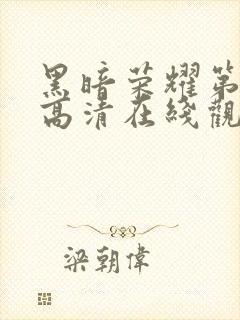 黑暗荣耀第
高清在綫觀
梁朝偉